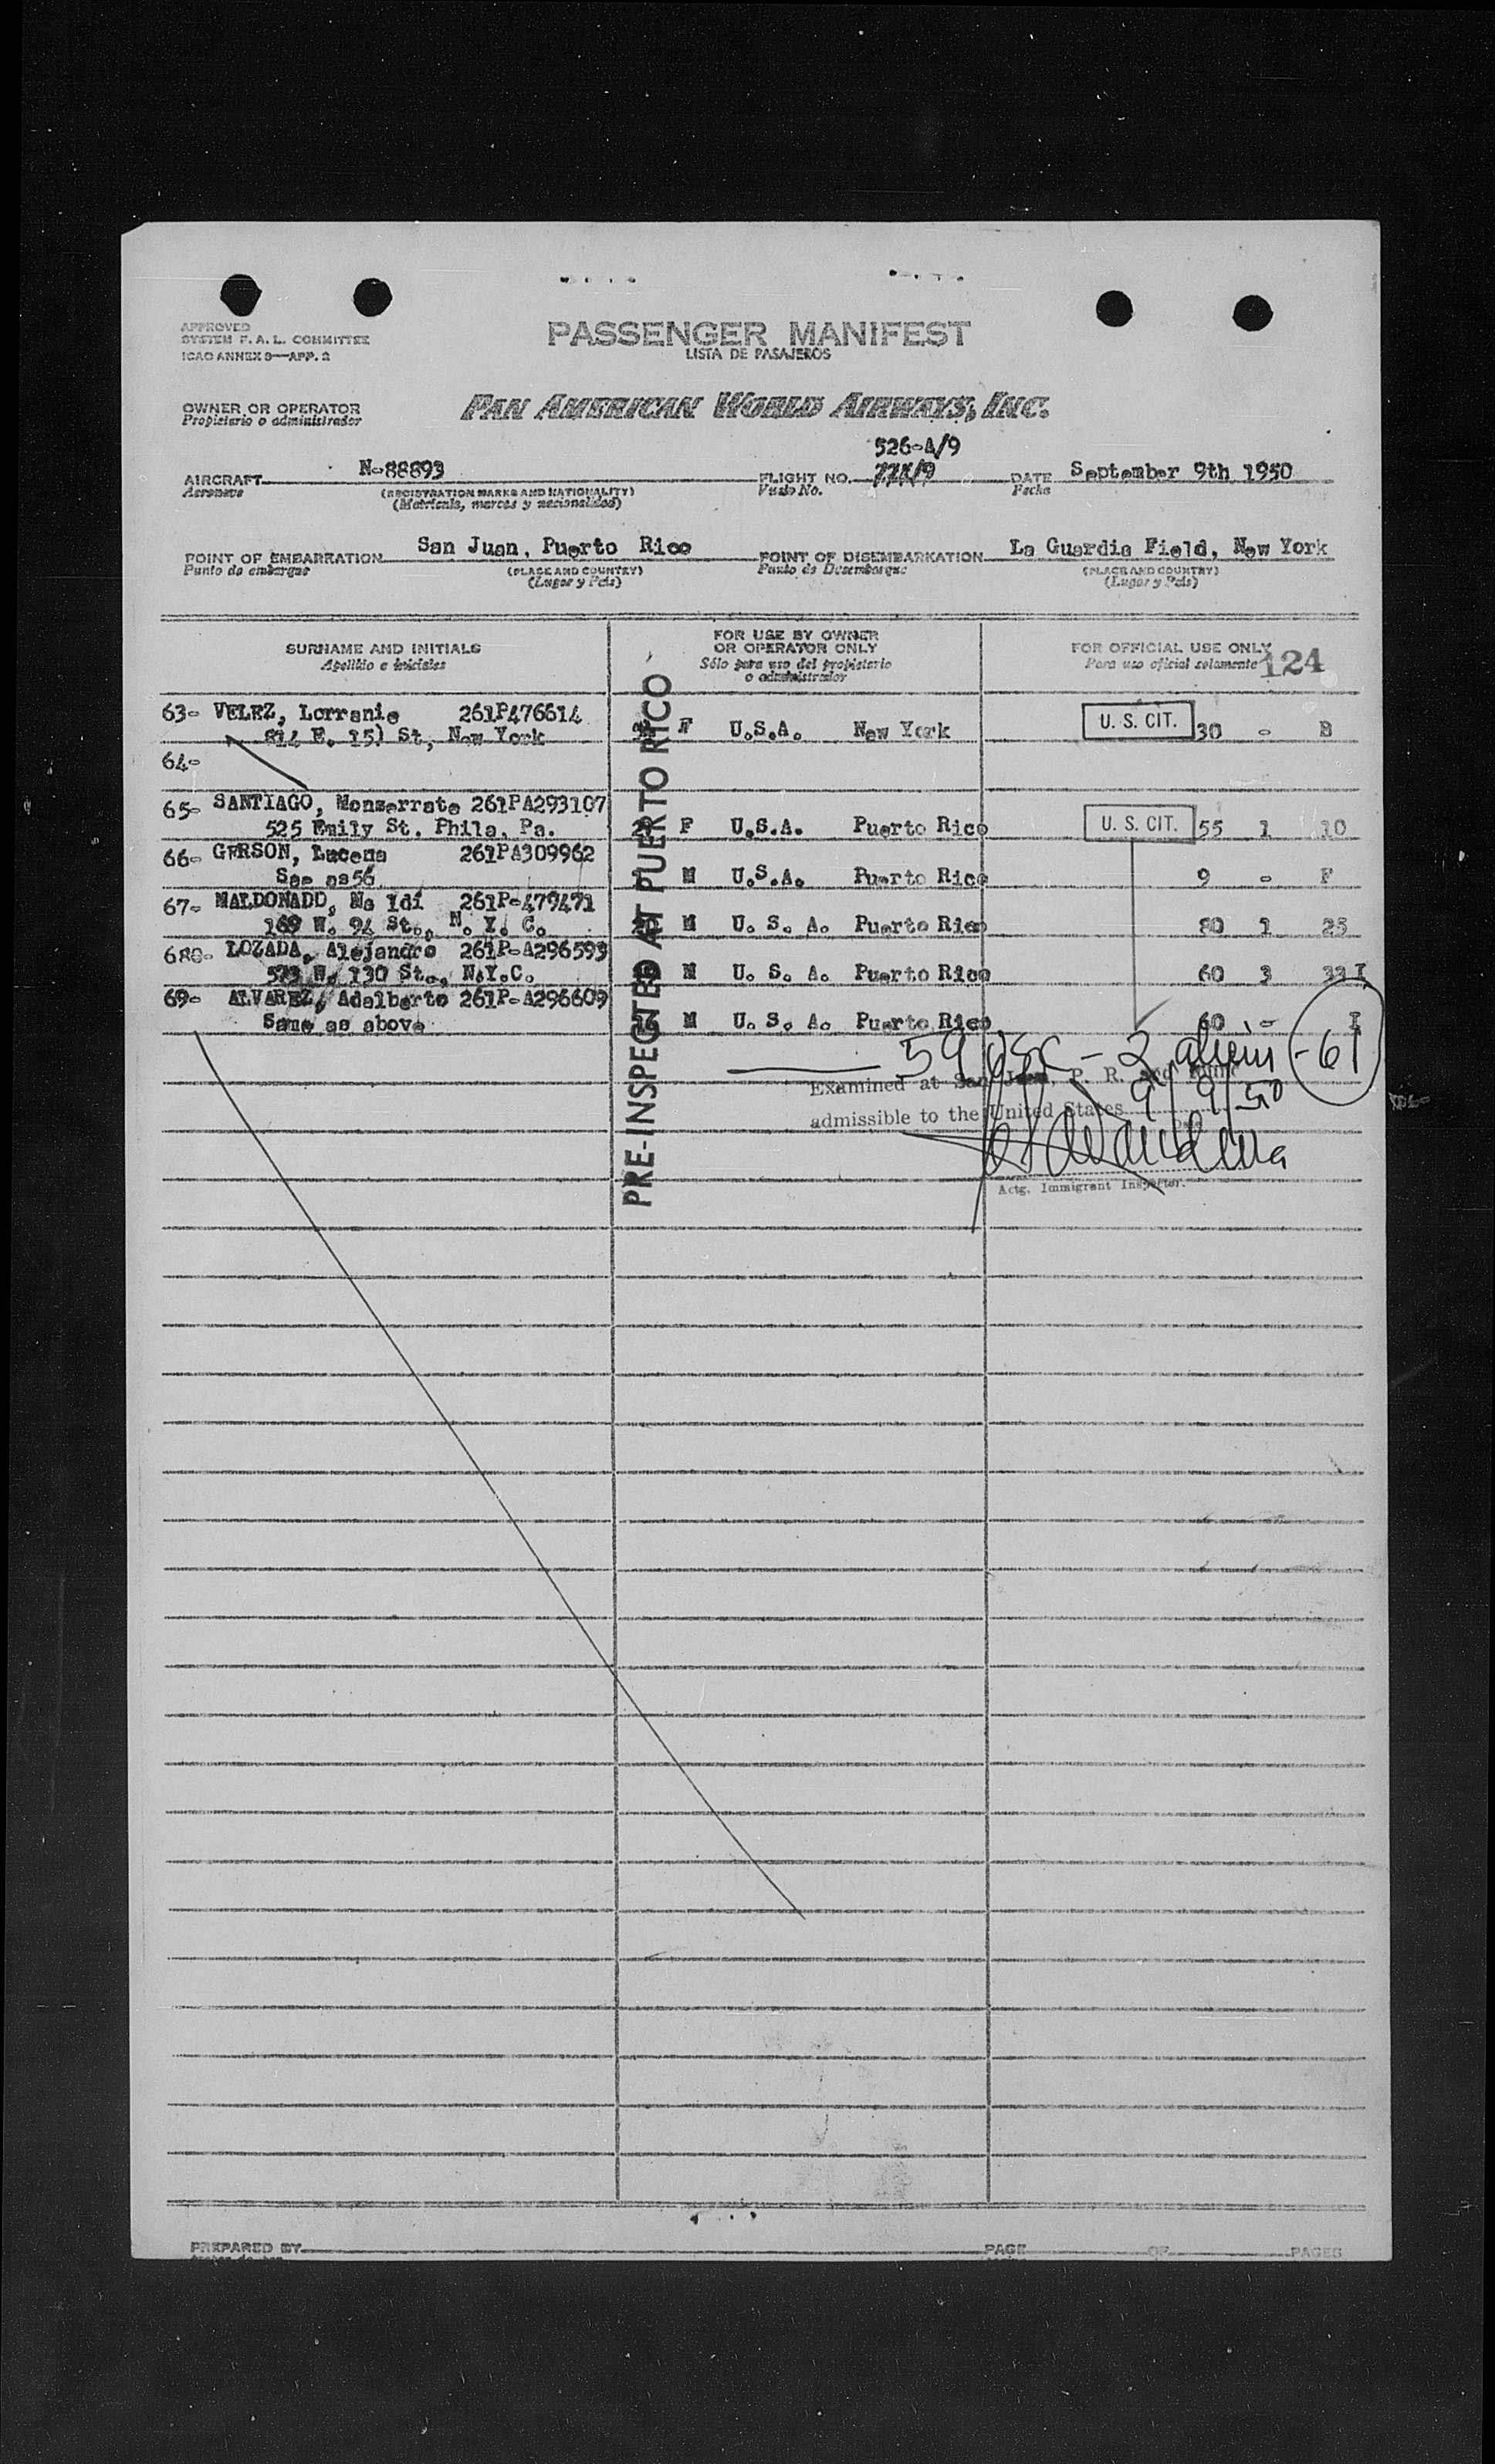 APPROVED
SYSTEM F. A. L. COMMITTEE
ICAO ANNEX 9—APP. 2
PASSENGER MANIFEST
LISTA DE PASAJEROS
OWNER OR OPERATOR
Propietario o administrador
PAN AMERICAN WORLD AIRWAYS, INC.
526-A/9
AIRCRAFT N-88893 FLIGHT NO. DATE September 9th 1950
Aeronave (REGISTRATION MARKS AND NATIONALITY) Vuelo No. Fecha
(Matricula, marcas y nacionalidad)
POINT OF EMBARKATION San Juan, Puerto Rico POINT OF DISEMBARKATION La Guardia Field, New York
Punto de embarque (PLACE AND COUNTRY) Punto de Desembarque (PLACE AND COUNTRY)
(Lugar y País) (Lugar y País)
SURNAME AND INITIALS FOR USE BY OWNER OR OPERATOR ONLY FOR OFFICIAL USE ONLY
Apellido e iniciales Sólo para uso del propietario o administrador Para uso oficial solamente 124
PRE-INSPECTED AT PUERTO RICO
63- VELEZ, Lorranie 261P476614 U. S. CIT.
814 E. 15) St, New York F U.S.A. New York 30 - B
64-
65- SANTIAGO, Monserrate 261PA293107 U. S. CIT.
525 Emily St. Phila. Pa. F U.S.A. Puerto Rico 55 1 10
66- GERSON, Lucena 261PA309962
Sae as56 M U.S.A. Puerto Rico 9 - F
67- MALDONADO, No Idi 261P-479471
169 W. 94 St., N. Y. C. M U. S. A. Puerto Rico 80 1 25
680- LOZADA, Alejandro 261P-A296593
523 W. 130 St., N.Y.C. M U. S. A. Puerto Rico 60 3 33 I
69- ALVAREZ, Adalberto 261P-A296609
Same as above M U. S. A. Puerto Rico 60 - I
59 USC - 2 aliens - 61
Examined at San Juan, P. R. and found
admissible to the United States 9/9/50
Actg. Immigrant Inspector.
PREPARED BY PAGE OF PAGES